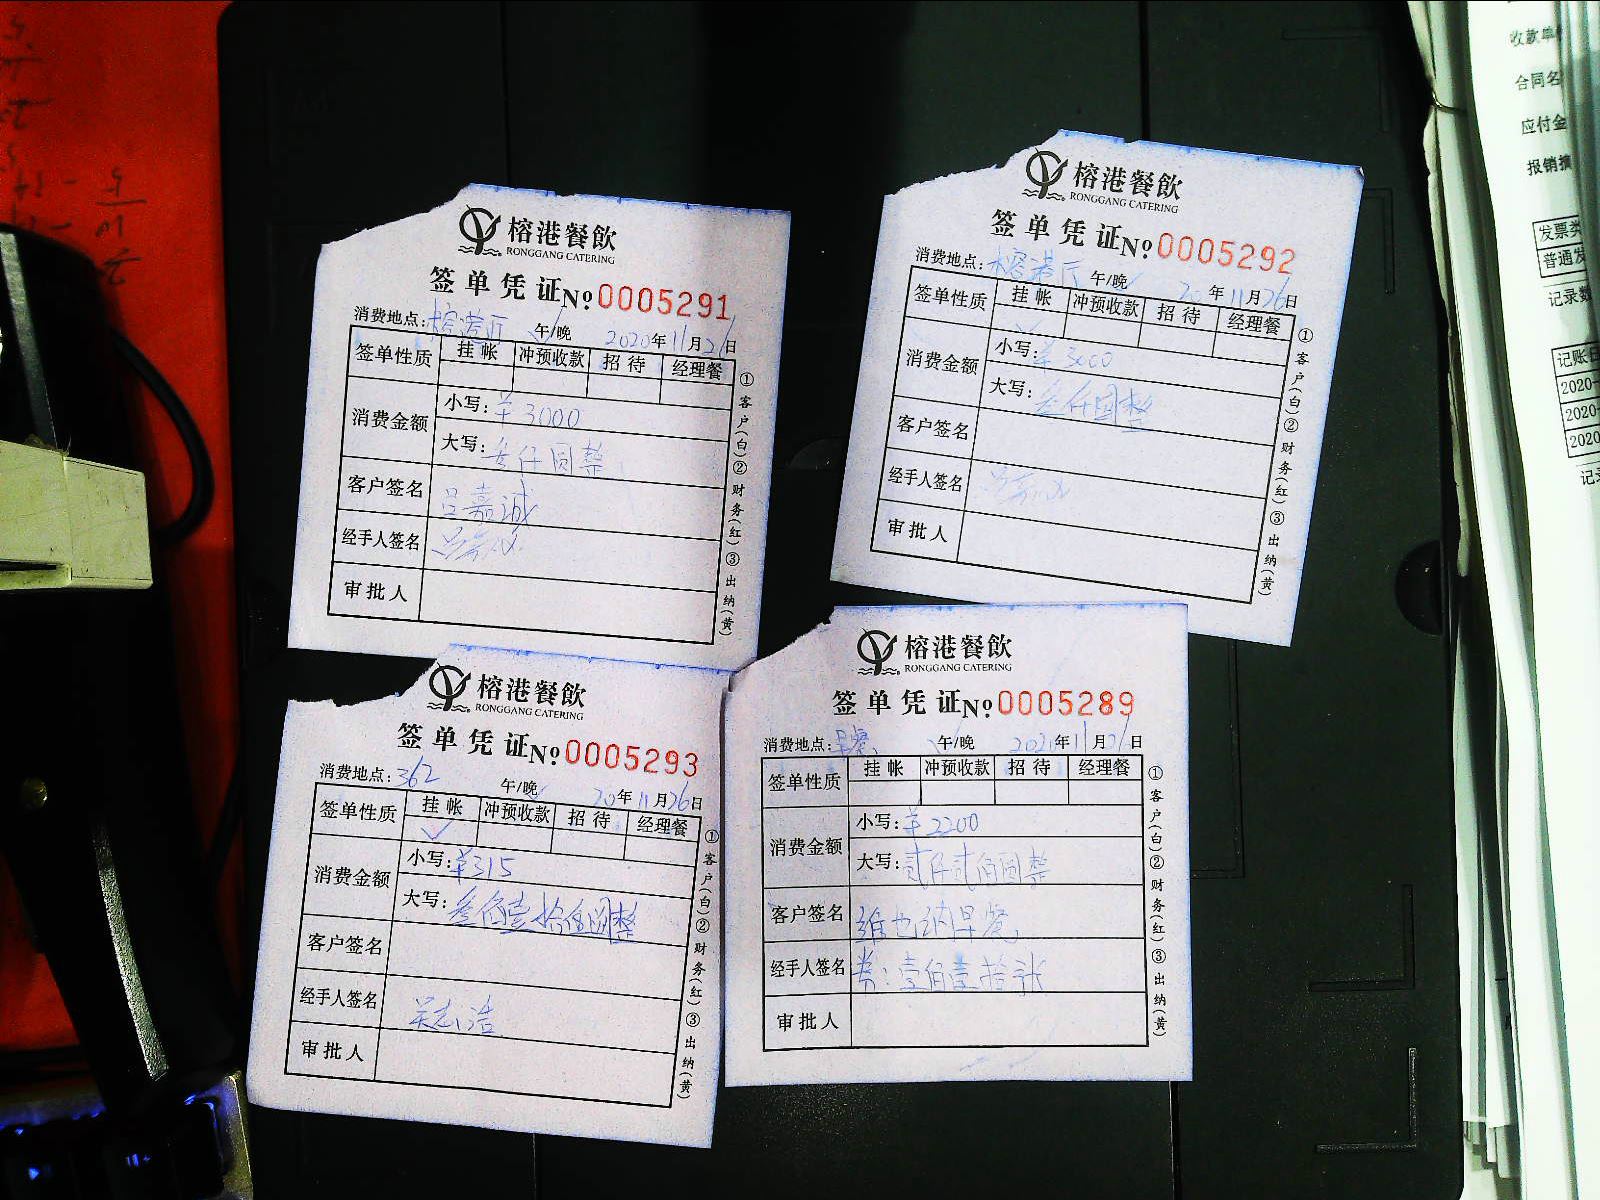 榕港餐飲
RONGGANG CATERING
签单凭证 №0005291
消费地点:榕港厅 午/晚 2020年11月26日
签单性质 挂帐 冲预收款 招待 经理餐
消费金额 小写:¥3000
大写:叁仟圆整
客户签名 吕嘉诚
经手人签名
审批人
①客户(白)②财务(红)③出纳(黄)
榕港餐飲
RONGGANG CATERING
签单凭证 №0005292
消费地点:榕港厅 午/晚 20年11月26日
签单性质 挂帐 冲预收款 招待 经理餐
消费金额 小写:¥3000
大写:叁仟圆整
客户签名
经手人签名
审批人
①客户(白)②财务(红)③出纳(黄)
榕港餐飲
RONGGANG CATERING
签单凭证 №0005293
消费地点:362 午/晚 20年11月26日
签单性质 挂帐 冲预收款 招待 经理餐
消费金额 小写:¥315
大写:叁佰壹拾伍圆整
客户签名
经手人签名 吴志浩
审批人
①客户(白)②财务(红)③出纳(黄)
榕港餐飲
RONGGANG CATERING
签单凭证 №0005289
消费地点:早餐 午/晚 年11月 日
签单性质 挂帐 冲预收款 招待 经理餐
消费金额 小写:¥2200
大写:贰仟贰佰圆整
客户签名 维也纳早餐
经手人签名 券:壹佰壹拾张
审批人
①客户(白)②财务(红)③出纳(黄)
收款单
合同名
应付金
报销摘
发票类
普通发
记录数
记账日
2020-
2020-
2020